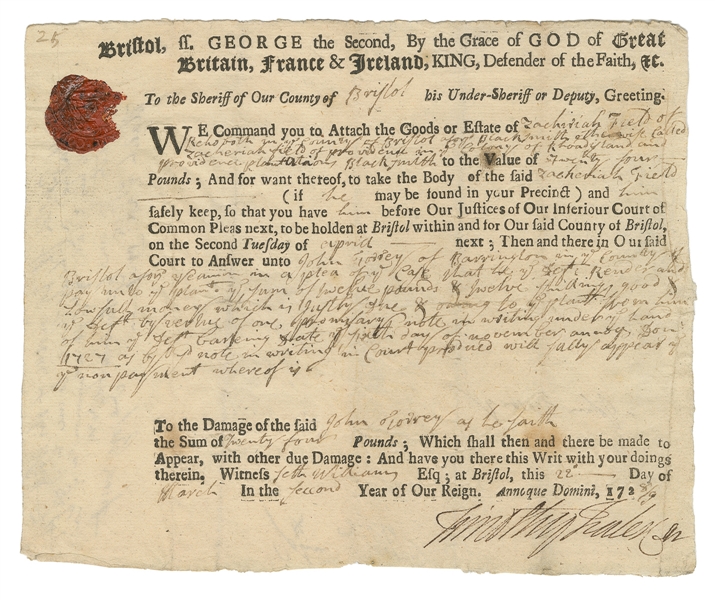 25
Bristol, ss. GEORGE the Second, By the Grace of GOD of Great
Britain, France & Ireland, KING, Defender of the Faith, &c.
To the Sheriff of Our County of Bristol his Under-Sheriff or Deputy, Greeting.
WE Command you to Attach the Goods or Estate of Zacheriah Field of
Rehoboth in yᵉ County of Bristol Blacksmith otherwise Called
Zacheriah Field of providence in yᵉ Colony of Rhoad Island and
providence plantations Blacksmith to the Value of Twenty four
Pounds; And for want thereof, to take the Body of the said Zacheriah Field
(if he may be found in your Precinct) and him
safely keep, so that you have him before Our Justices of Our Inferiour Court of
Common Pleas next, to be holden at Bristol within and for Our said County of Bristol,
on the Second Tuesday of aprill next; Then and there in Our said
Court to Answer unto John of Barrington in yᵉ County of
Bristol in a plea of yᵉ Case that he yᵉ Deft Render and
pay unto yᵉ plant yᵉ Sum of twelve pounds & twelve shillings good
Lawfull money which is Justly due & to yᵉ plant from him
yᵉ Deft by vertue of one promisary note in writing under yᵉ hand
of him yᵉ Deft bareing date yᵉ day of november
1727 as by sd note in writing in Court produced will fully appear
yᵉ non payment whereof is
To the Damage of the said John as he saith
the Sum of Twenty four Pounds; Which shall then and there be made to
Appear, with other due Damage: And have you there this Writ with your doings
therein. Witness Seth Williams Esq; at Bristol, this 22 Day of
March In the Second Year of Our Reign. Annoque Domini, 172 8/9